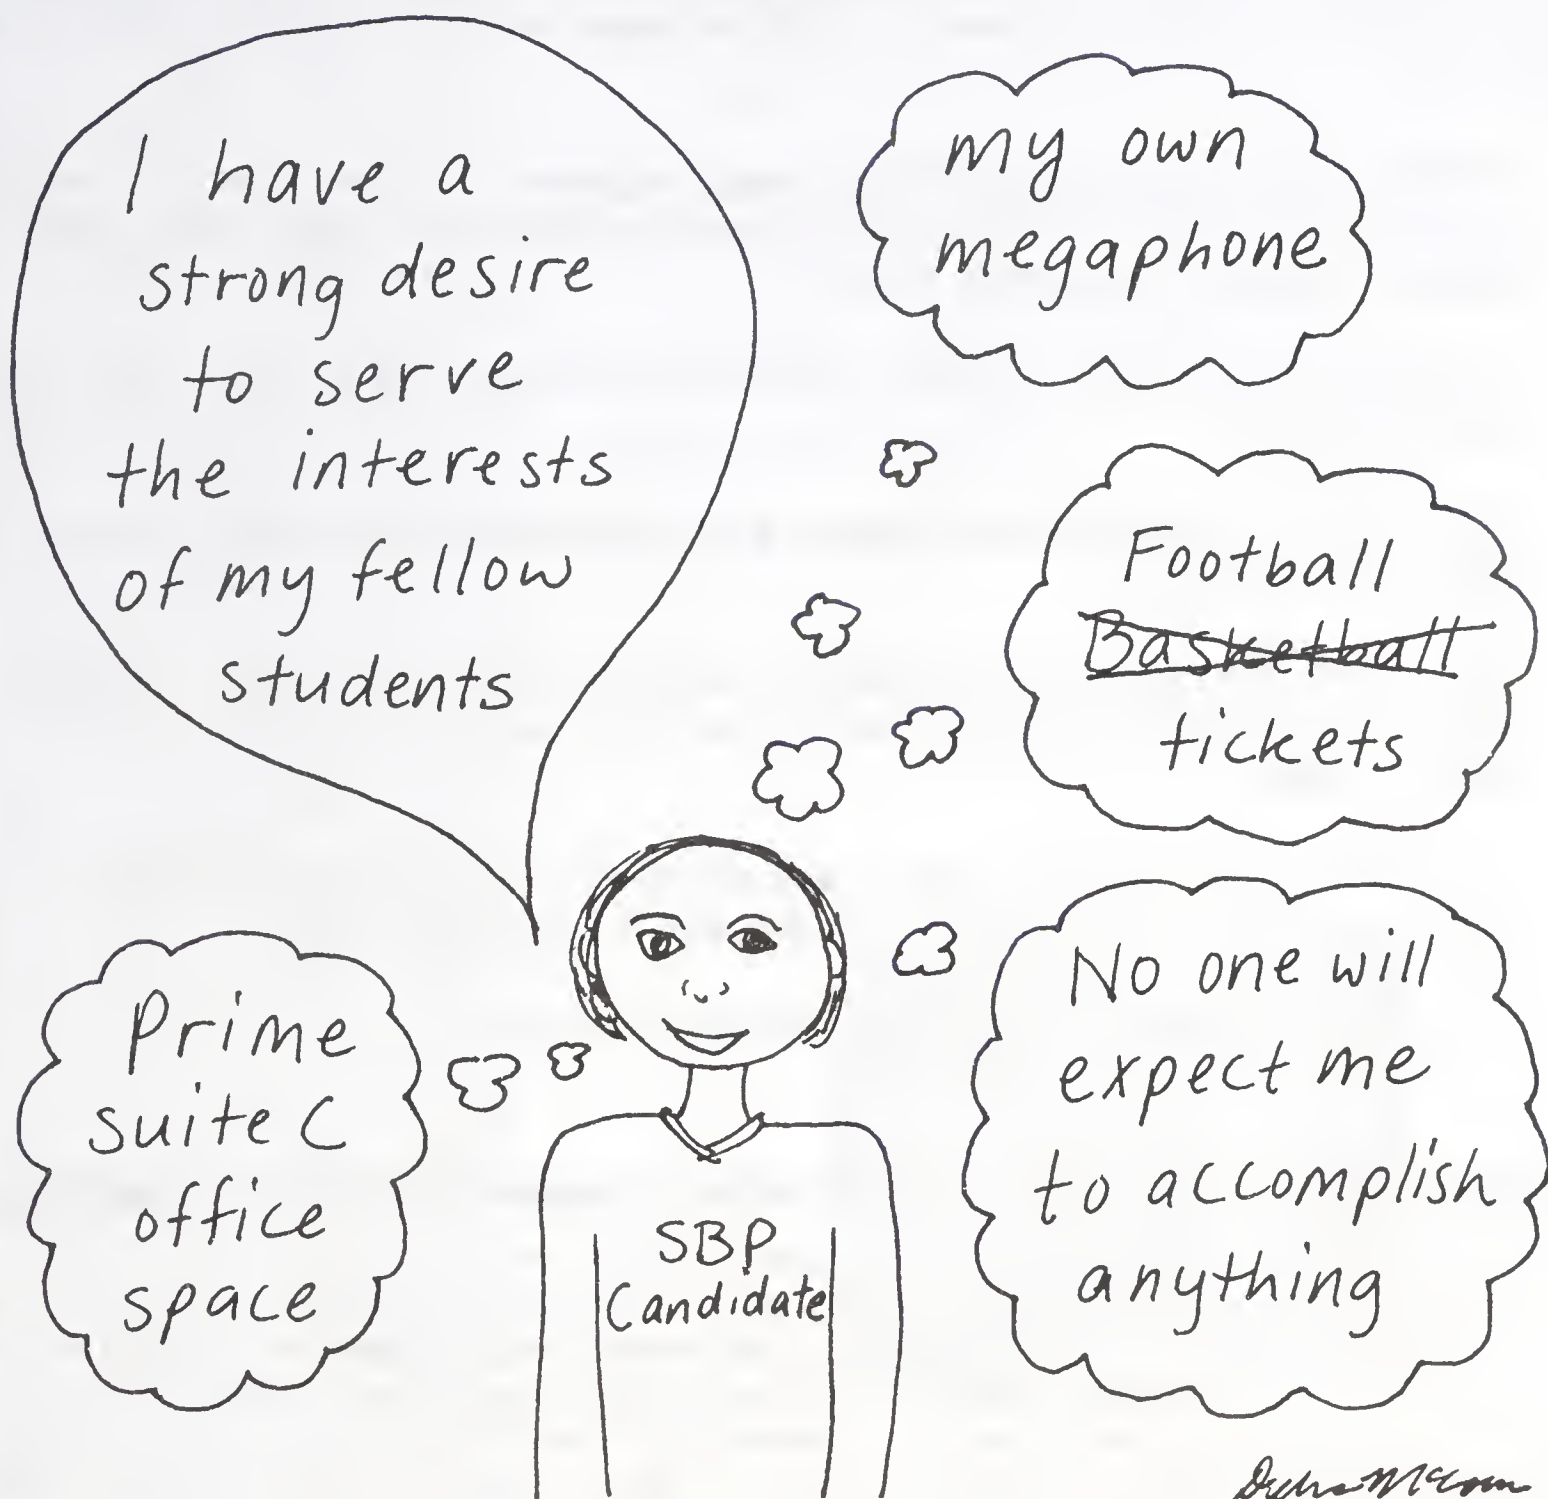 I have a
strong desire
to serve
the interests
of my fellow
students
my own
megaphone
Football
Basketball
tickets
No one will
expect me
to accomplish
anything
Prime
suite C
office
space
SBP
Candidate